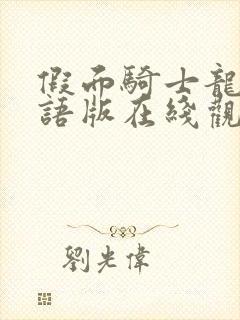 假面騎士龍
語版在綫觀
劉光偉